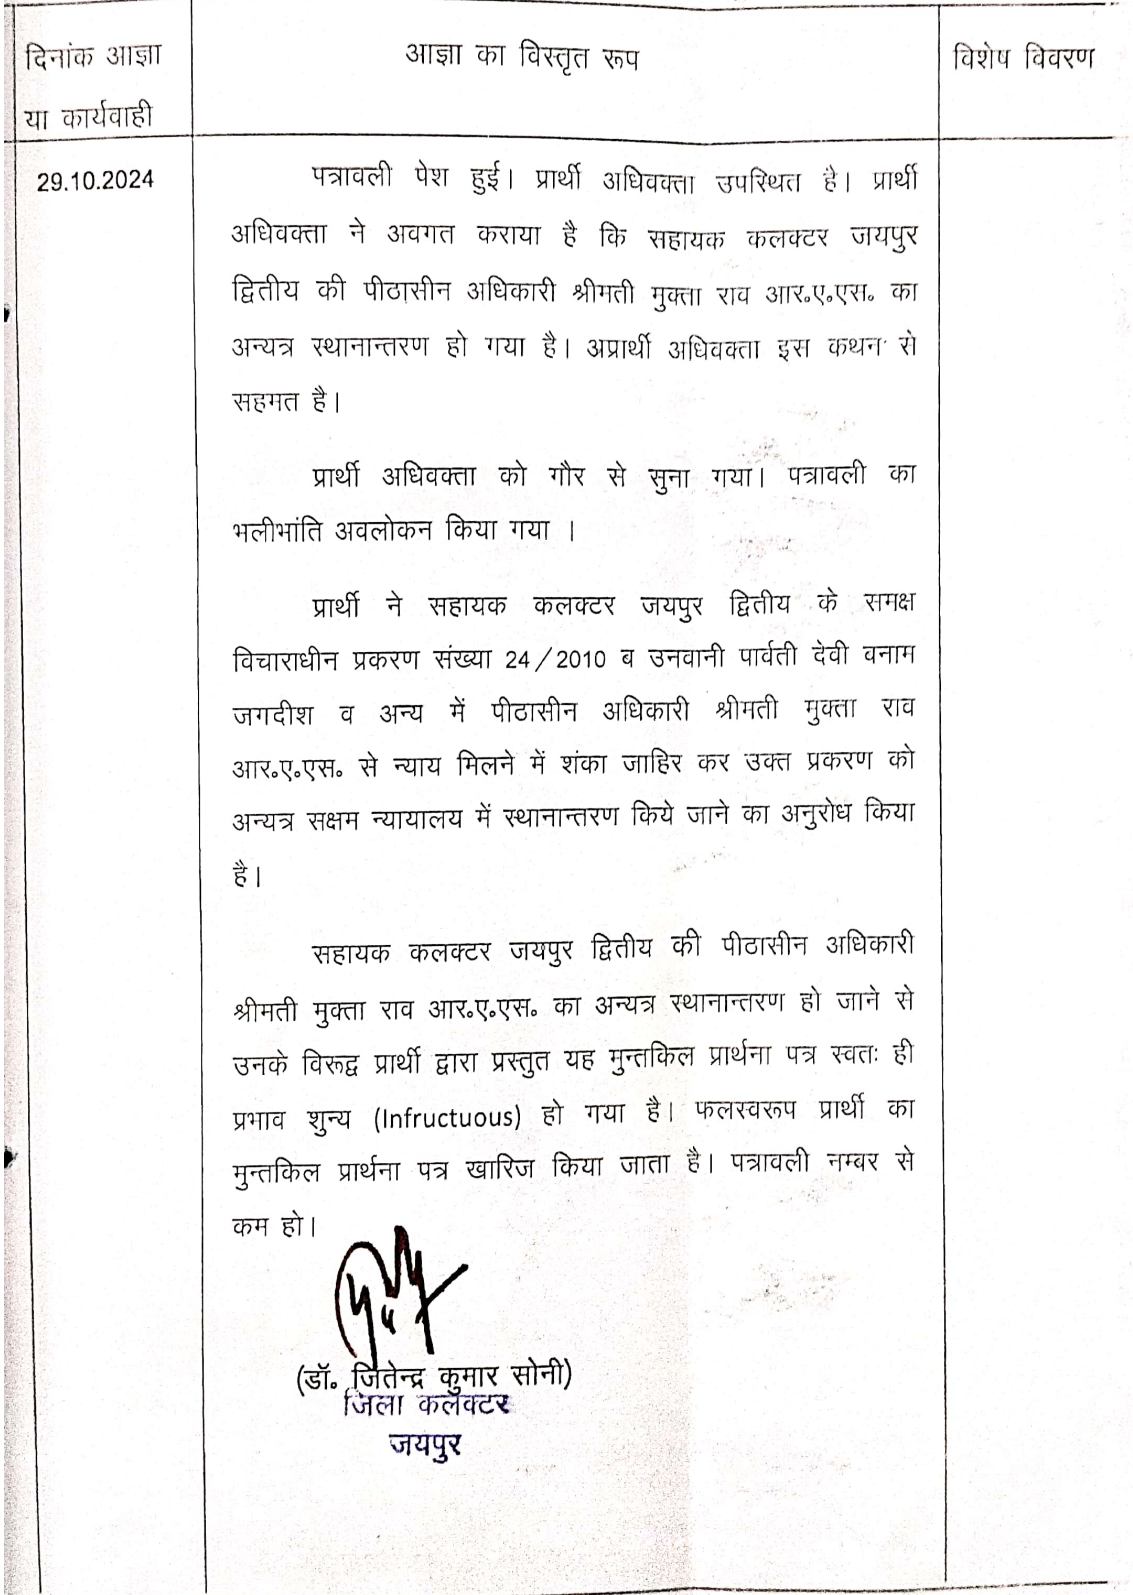 दिनांक आज्ञा
या कार्यवाही
आज्ञा का विस्तृत रूप
विशेष विवरण
29.10.2024
पत्रावली पेश हुई। प्रार्थी अधिवक्ता उपस्थित है। प्रार्थी
अधिवक्ता ने अवगत कराया है कि सहायक कलक्टर जयपुर
द्वितीय की पीठासीन अधिकारी श्रीमती मुक्ता राव आर०ए०एस० का
अन्यत्र स्थानान्तरण हो गया है। अप्रार्थी अधिवक्ता इस कथन से
सहमत है।
प्रार्थी अधिवक्ता को गौर से सुना गया। पत्रावली का
भलीभांति अवलोकन किया गया ।
प्रार्थी ने सहायक कलक्टर जयपुर द्वितीय के समक्ष
विचाराधीन प्रकरण संख्या 24/2010 ब उनवानी पार्वती देवी वनाम
जगदीश व अन्य में पीठासीन अधिकारी श्रीमती मुक्ता राव
आर०ए०एस० से न्याय मिलने में शंका जाहिर कर उक्त प्रकरण को
अन्यत्र सक्षम न्यायालय में स्थानान्तरण किये जाने का अनुरोध किया
है।
सहायक कलक्टर जयपुर द्वितीय की पीठासीन अधिकारी
श्रीमती मुक्ता राव आर०ए०एस० का अन्यत्र स्थानान्तरण हो जाने से
उनके विरूद्व प्रार्थी द्वारा प्रस्तुत यह मुन्तकिल प्रार्थना पत्र स्वतः ही
प्रभाव शुन्य (Infructuous) हो गया है। फलस्वरूप प्रार्थी का
मुन्तकिल प्रार्थना पत्र खारिज किया जाता है। पत्रावली नम्बर से
कम हो।
(डॉ० जितेन्द्र कुमार सोनी)
जिला कलक्टर
जयपुर